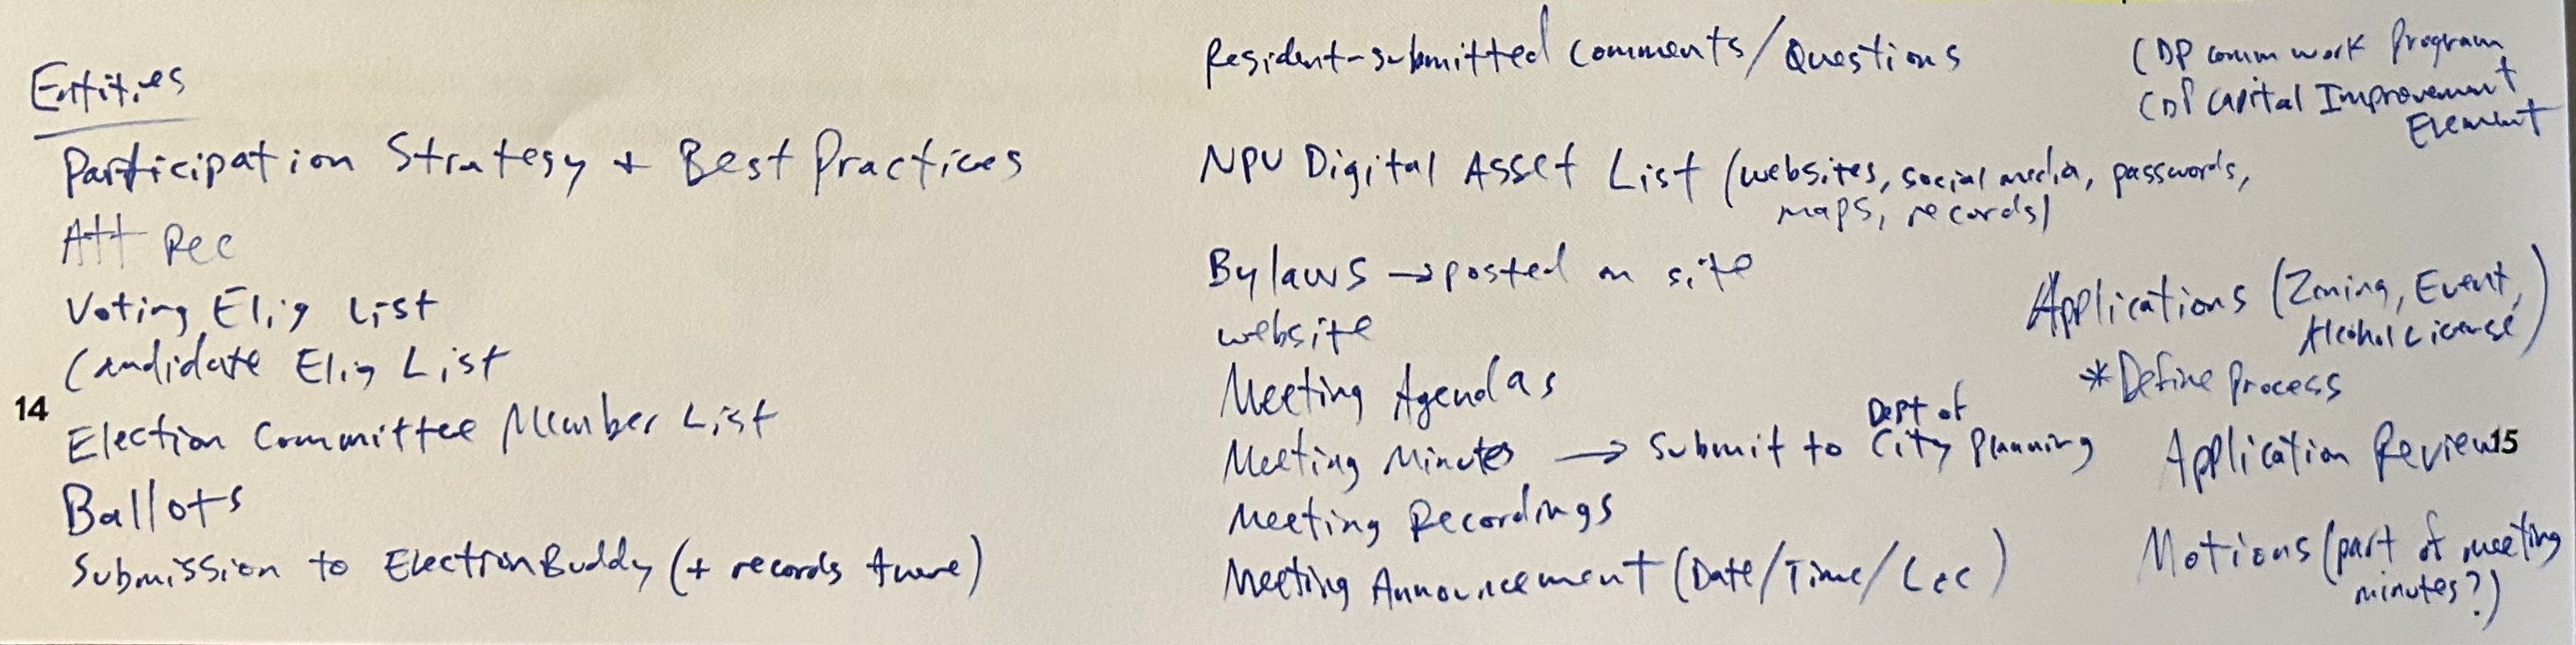 Entities
Participation Strategy + Best Practices
Att Rec
Voting Elig List
Candidate Elig List
14
Election Committee Member List
Ballots
Submission to ElectionBuddy (+ records there)
Resident-submitted Comments/Questions
NPU Digital Asset List (websites, social media, passwords,
maps, records)
Bylaws → posted on site
website
Meeting Agendas
Dept of
Meeting Minutes → Submit to City Planning
Meeting Recordings
Meeting Announcement (Date/Time/Loc)
CDP comm work Program
CDP Capital Improvement
Element
Applications (Zoning, Event,
Alcohol License)
*Define Process
Application Review
15
Motions (part of meeting
minutes?)